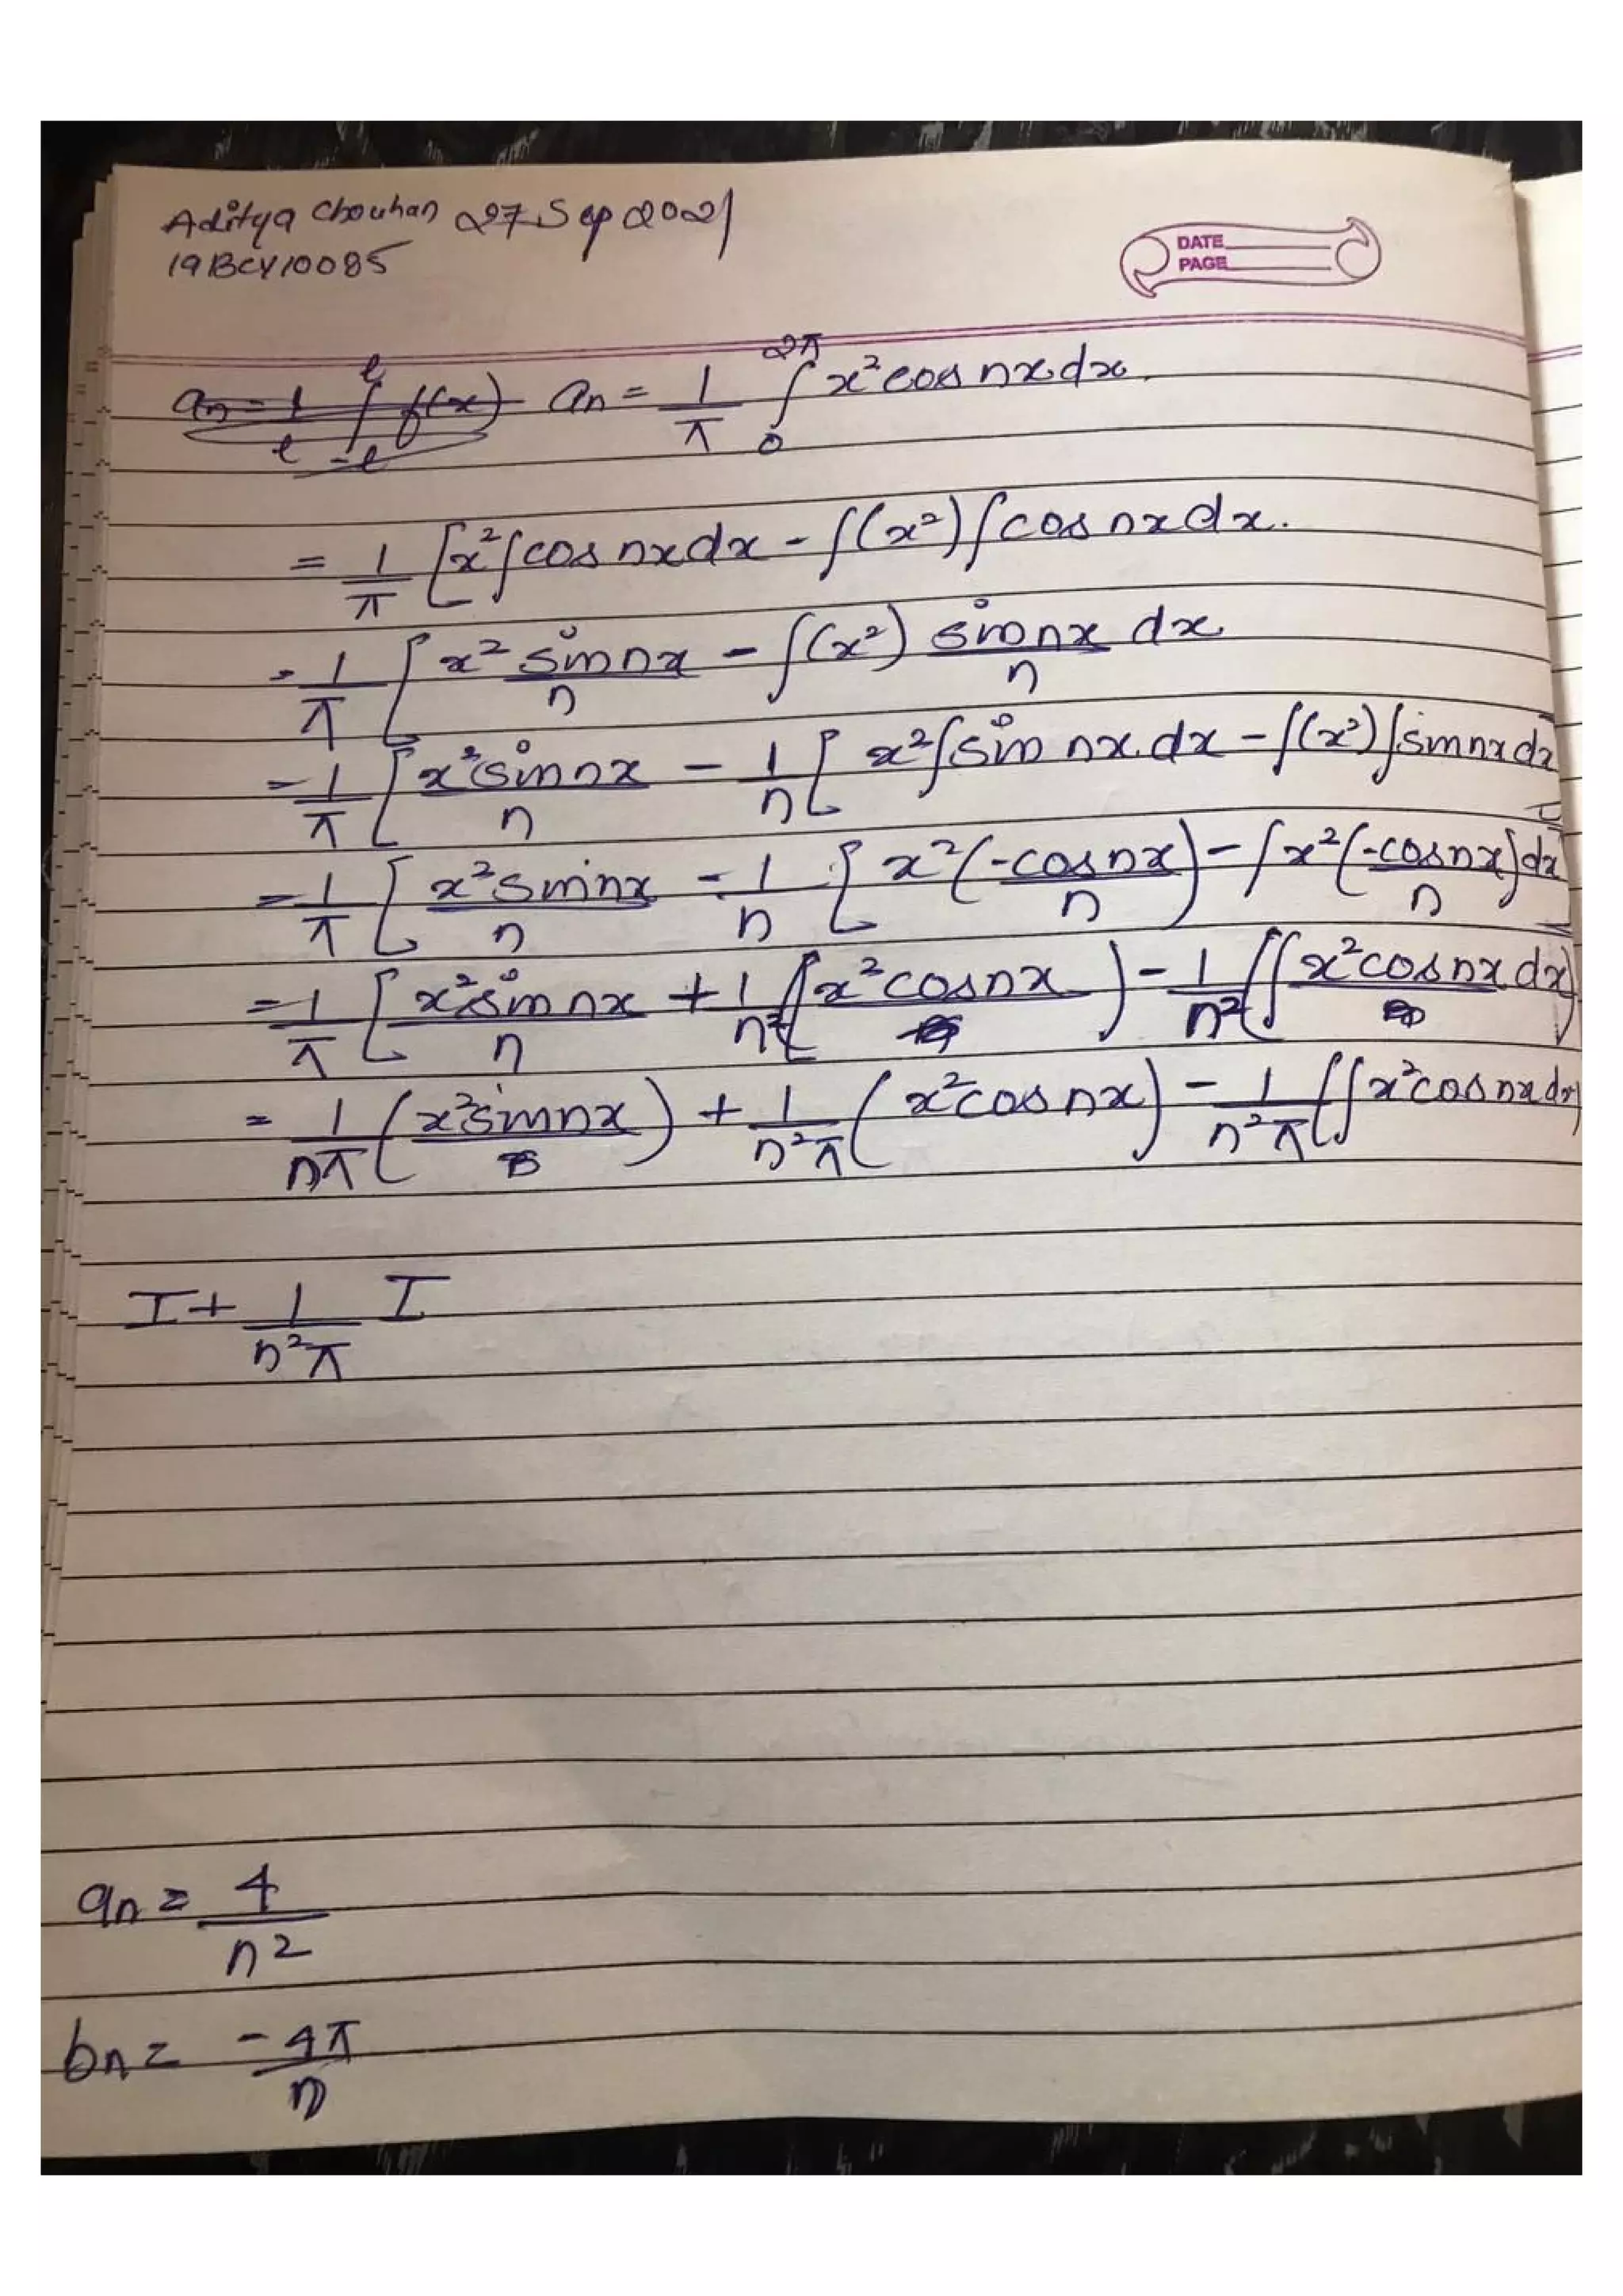 Aditya Chouhan 27 Sep 2021
19BCY10085
DATE
PAGE
an = 1/l ∫_-l^l f(x) an = 1/π ∫_0^2π x² cos nx dx.
= 1/π [x² ∫cos nx dx - ∫(x²) ∫cos nx dx.
= 1/π [ x² sin nx/n - ∫(x²) sin nx/n dx
= 1/π [ x² sin nx/n - 1/n [ x² ∫sin nx dx - ∫(x²) ∫sin nx dx
= 1/π [ x² sin nx/n - 1/n [ x² (-cos nx/n) - ∫x² (-cos nx/n) dx
= 1/π [ x² sin nx/n + 1/n² (x² cos nx) - 1/n² (∫x² cos nx dx)
= 1/nπ (x² sin nx) + 1/n²π (x² cos nx) - 1/n²π (∫x² cos nx dx)
I + 1/n²π I
an = 4/n²
bn = -4π/n